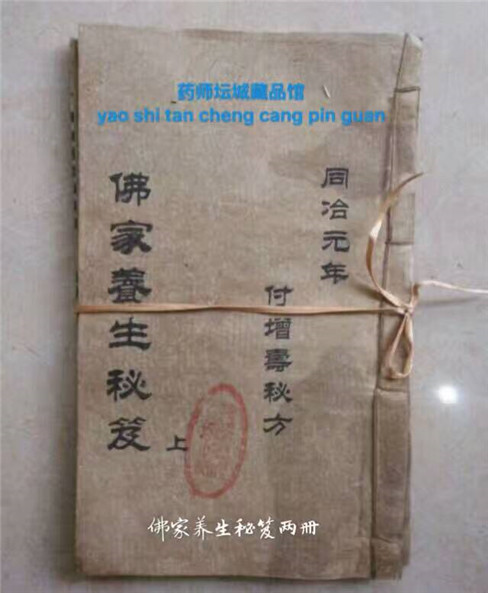 药师坛城藏品馆
yao shi tan cheng cang pin guan
同冶元年
付增壽秘方
佛家養生秘笈
上
佛家养生秘笈两册